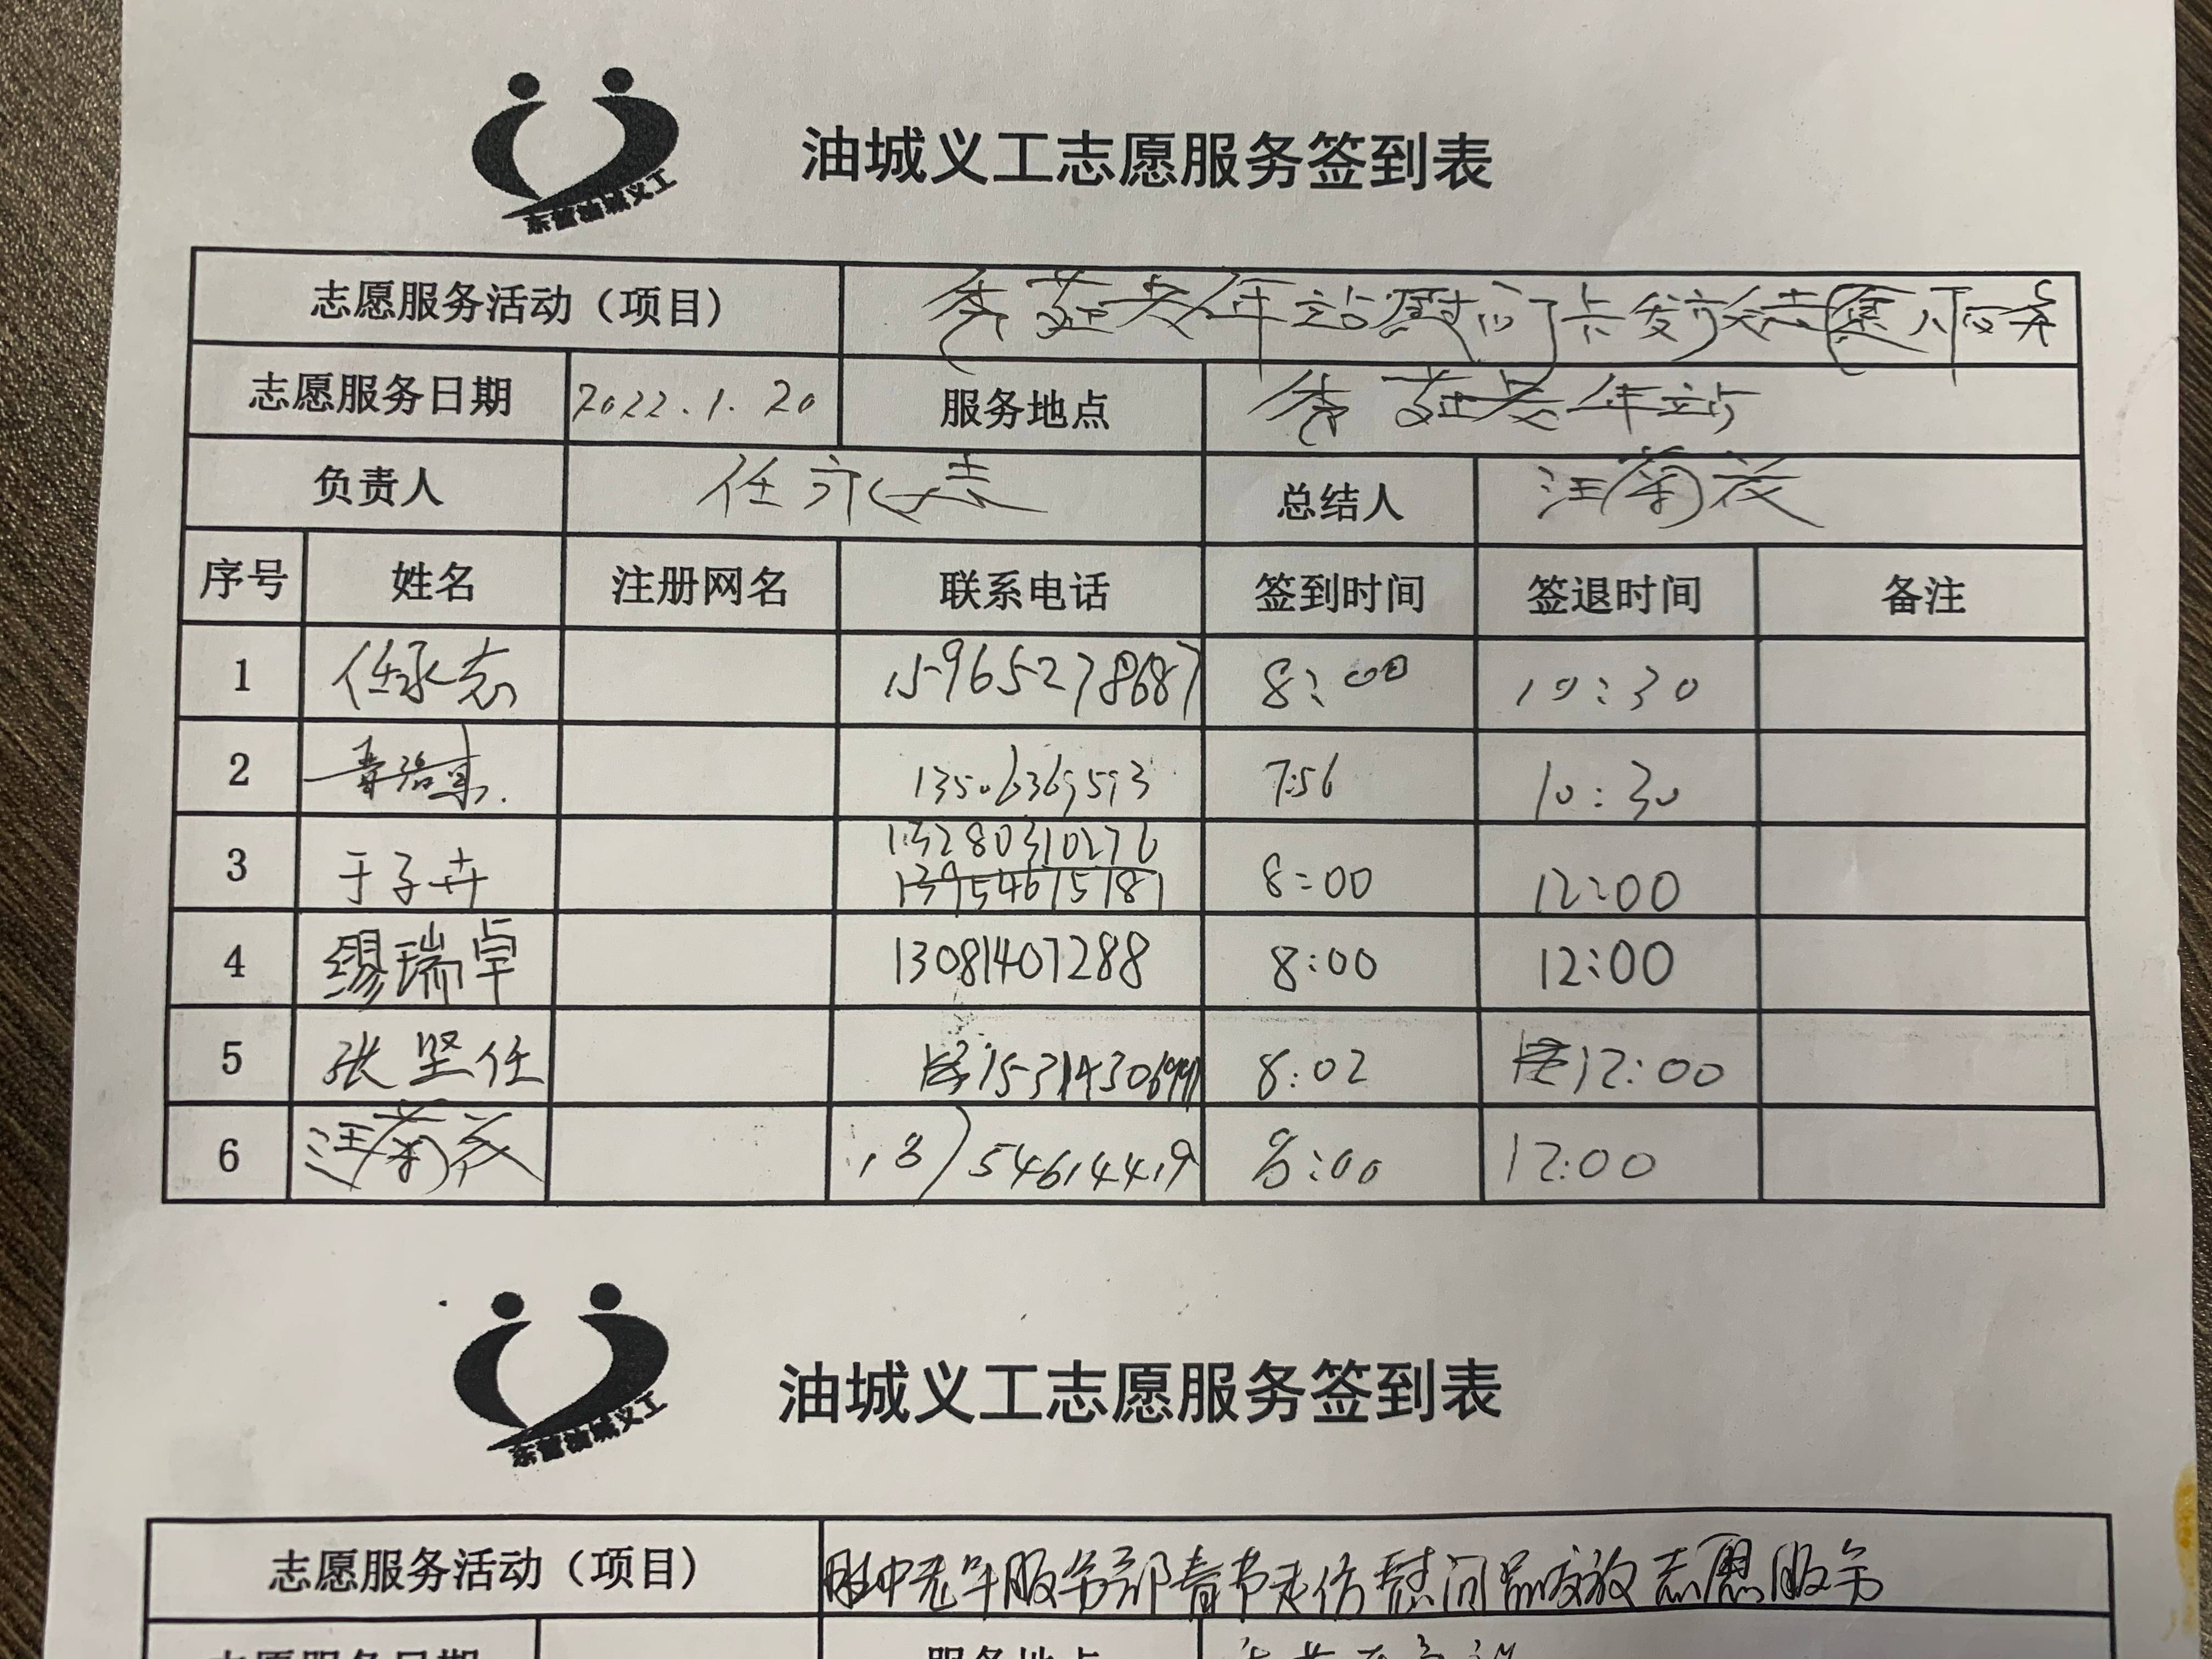 东营油城义工
油城义工志愿服务签到表
志愿服务活动（项目） 老年站慰问卡发放志愿服务
志愿服务日期 2022.1.20 服务地点 老年站
负责人 任永志 总结人 汪菊茂
序号 姓名 注册网名 联系电话 签到时间 签退时间 备注
1 任永志 15965278687 8:00 10:30
2 13506369593 7:56 10:30
3 于子卉 13280310276 8:00 12:00
13954615181
4 缐瑞卓 13081407288 8:00 12:00
5 张坚任 8:02 12:00
6 汪菊茂 18754614419 8:00 12:00
东营油城义工
油城义工志愿服务签到表
志愿服务活动（项目） 胜中老年服务部春节走访慰问品发放志愿服务
志愿服务日期 服务地点